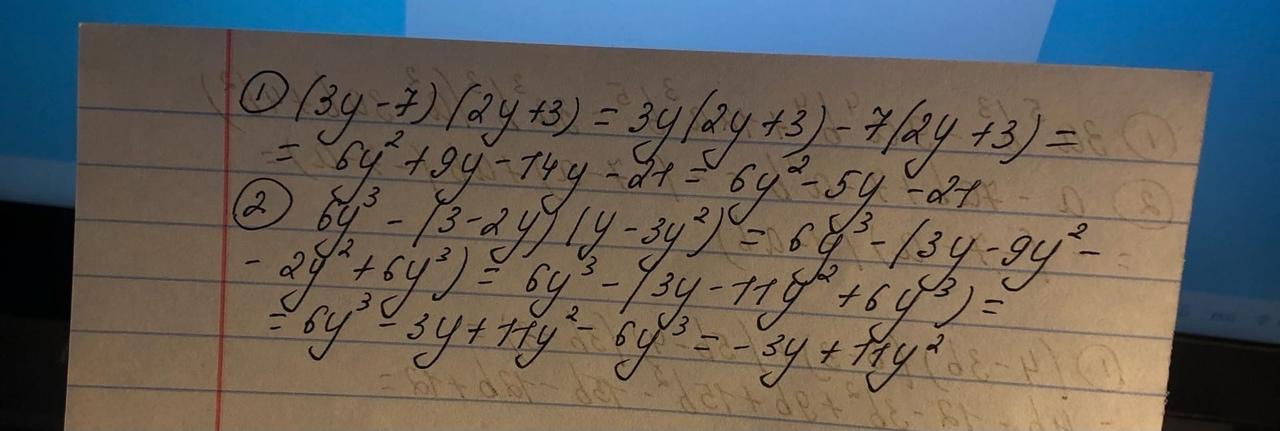 ① (3y-7)(2y+3) = 3y(2y+3) - 7(2y+3) =
= 6y² + 9y - 14y - 21 = 6y² - 5y - 21
② 6y³ - (3-2y)(y-3y²) = 6y³ - (3y - 9y² -
- 2y² + 6y³) = 6y³ - (3y - 11y² + 6y³) =
= 6y³ - 3y + 11y² - 6y³ = -3y + 11y²